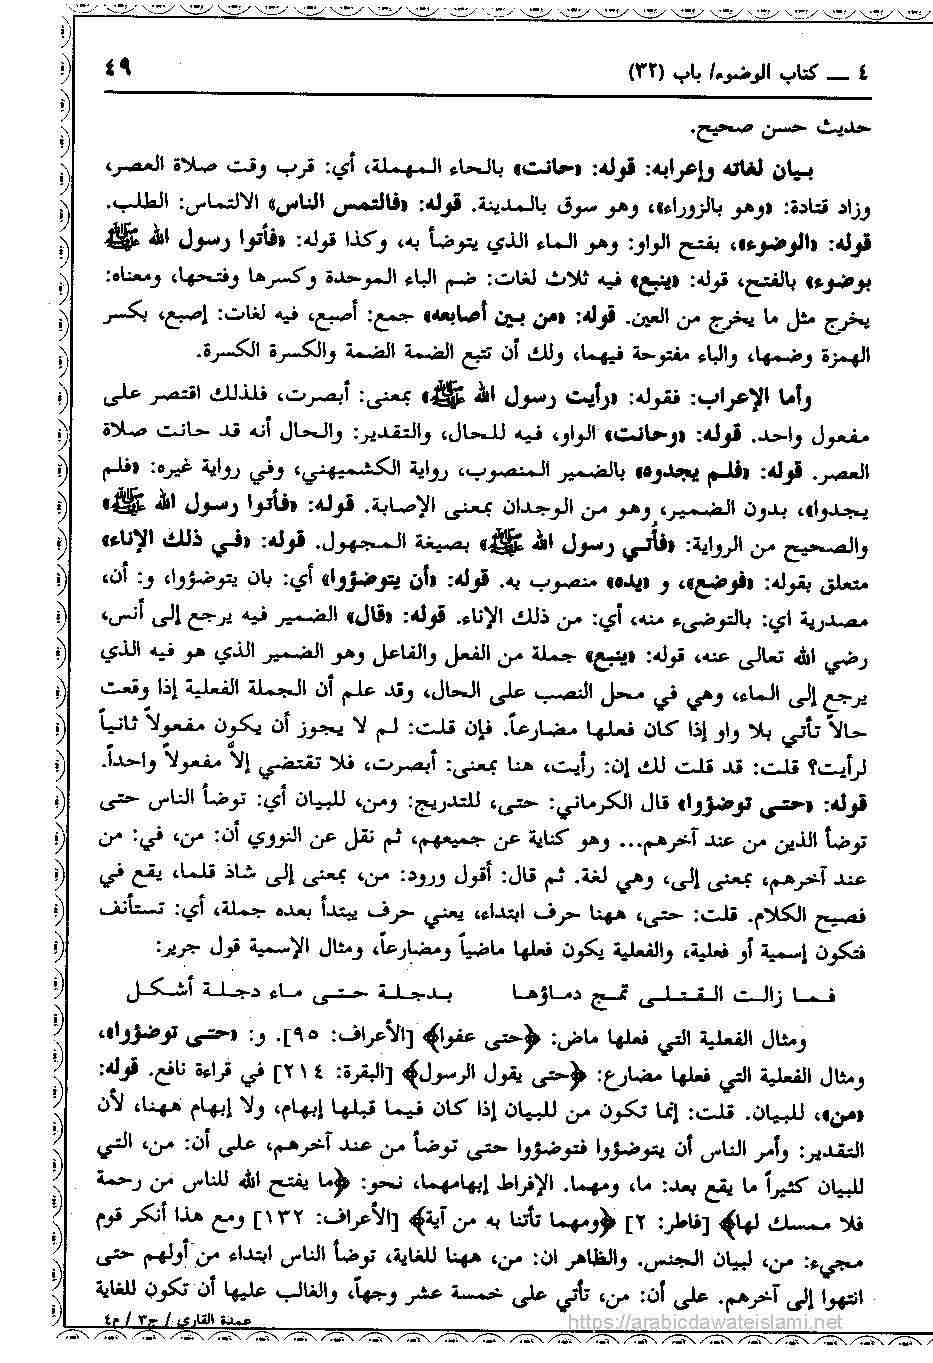 ٤ ــ كتاب الوضوء/ باب (٣٢) ٤٩
حديث حسن صحيح.
بيان لغاته وإعرابه: قوله: «حانت» بالحاء المهملة، أي: قرب وقت صلاة العصر،
وزاد قتادة: «وهو بالزوراء»، وهو سوق بالمدينة. قوله: «فالتمس الناس» الالتماس: الطلب.
قوله: «الوضوء»، بفتح الواو: وهو الماء الذي يتوضأ به، وكذا قوله: «فأتوا رسول الله ﷺ
بوضوء» بالفتح، قوله: «ينبع» فيه ثلاث لغات: ضم الباء الموحدة وكسرها وفتحها، ومعناه:
يخرج مثل ما يخرج من العين. قوله: «من بين أصابعه» جمع: أصبع، فيه لغات: إصبع، بكسر
الهمزة وضمها، والباء مفتوحة فيهما، ولك أن تتبع الضمة الضمة والكسرة الكسرة.
وأما الإعراب: فقوله: «رأيت رسول الله ﷺ» بمعنى: أبصرت، فلذلك اقتصر على
مفعول واحد. قوله: «وحانت» الواو، فيه للحال، والتقدير: والحال أنه قد حانت صلاة
العصر. قوله: «فلم يجدوه» بالضمير المنصوب، رواية الكشميهني، وفي رواية غيره: «فلم
يجدوا»، بدون الضمير، وهو من الوجدان بمعنى الإصابة. قوله: «فأتوا رسول الله ﷺ»
والصحيح من الرواية: «فأُتي رسول الله ﷺ» بصيغة المجهول. قوله: «في ذلك الإناء»
متعلق بقوله: «فوضع»، و «يده» منصوب به. قوله: «أن يتوضؤوا» أي: بان يتوضؤوا، و: أن،
مصدرية اي: بالتوضىء منه، أي: من ذلك الإناء. قوله: «قال» الضمير فيه يرجع إلى أنس،
رضي الله تعالى عنه، قوله: «ينبع» جملة من الفعل والفاعل وهو الضمير الذي هو فيه الذي
يرجع إلى الماء، وهي في محل النصب على الحال، وقد علم أن الجملة الفعلية إذا وقعت
حالاً تأتي بلا واو إذا كان فعلها مضارعاً. فإن قلت: لم لا يجوز أن يكون مفعولاً ثانياً
لرأيت؟ قلت: قد قلت لك إن: رأيت، هنا بمعنى: أبصرت، فلا تقتضي إلاَّ مفعولاً واحداً.
قوله: «حتى توضؤوا» قال الكرماني: حتى، للتدريج: ومن، للبيان أي: توضأ الناس حتى
توضأ الذين من عند آخرهم... وهو كناية عن جميعهم، ثم نقل عن النووي أن: من، في: من
عند آخرهم، بمعنى إلى، وهي لغة. ثم قال: أقول ورود: من، بمعنى إلى شاذ قلما، يقع في
فصيح الكلام. قلت: حتى، ههنا حرف ابتداء، يعني حرف يبتدأ بعده جملة، أي: تستأنف
فتكون إسمية أو فعلية، والفعلية يكون فعلها ماضياً ومضارعاً، ومثال الإسمية قول جرير:
فما زالت القتلى تمج دماؤها بدجلة حتى ماء دجلة أشكل
ومثال الفعلية التي فعلها ماض: ﴿حتى عفوا﴾ [الأعراف: ٩٥]. و: «حتى توضؤوا»،
ومثال الفعلية التي فعلها مضارع: ﴿حتى يقول الرسول﴾ [البقرة: ٢١٤] في قراءة نافع. قوله:
«من»، للبيان. قلت: إنما تكون من للبيان إذا كان فيما قبلها إبهام، ولا إبهام ههنا، لأن
التقدير: وأمر الناس أن يتوضؤوا فتوضؤوا حتى توضأ من عند آخرهم، على أن: من، التي
للبيان كثيراً ما يقع بعد: ما، ومهما. الإفراط إبهامهما، نحو: ﴿ما يفتح الله للناس من رحمة
فلا ممسك لها﴾ [فاطر: ٢] ﴿ومهما تأتنا به من آية﴾ [الأعراف: ١٣٢] ومع هذا أنكر قوم
مجيء: من، لبيان الجنس. والظاهر ان: من، ههنا للغاية، توضأ الناس ابتداء من أولهم حتى
انتهوا إلى آخرهم. على أن: من، تأتي على خمسة عشر وجهاً، والغالب عليها أن تكون للغاية
عمدة القاري / ج٣ / م٤
https://arabicdawateislami.net